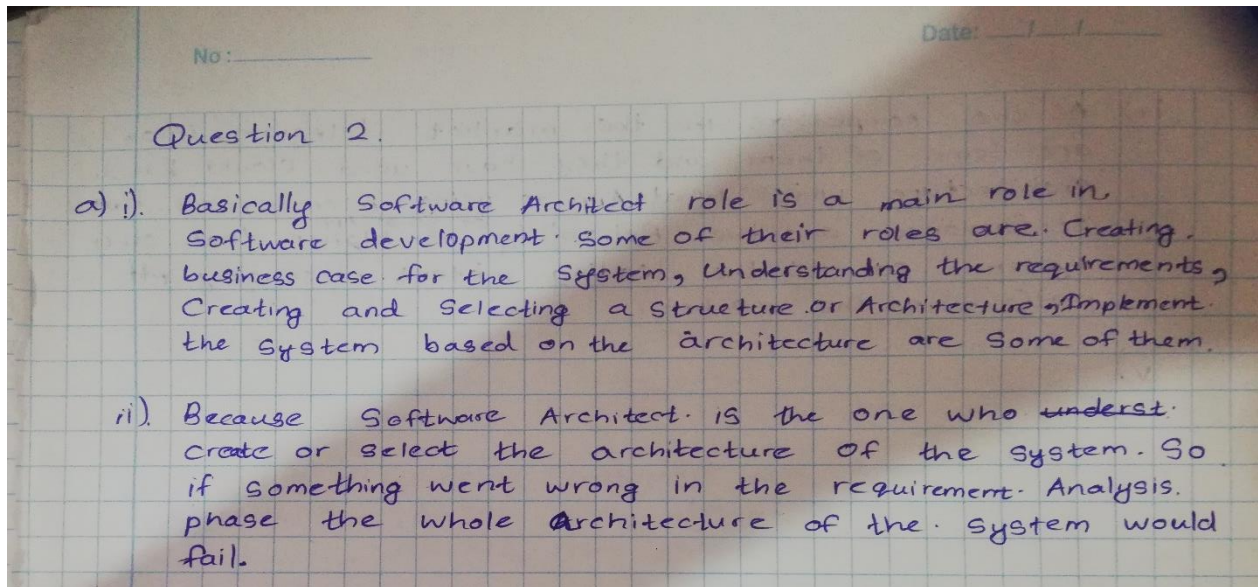 No :
Date: / /
Question 2.
a) i). Basically Software Architect role is a main role in
Software development. Some of their roles are. Creating.
business case for the System, Understanding the requirements,
Creating and Selecting a Structure or Architecture, Implement.
the System based on the architecture are Some of them.
ii). Because Software Architect. is the one who underst.
create or select the architecture of the system. So
if something went wrong in the requirement. Analysis.
phase the whole Architecture of the. system would
fail.